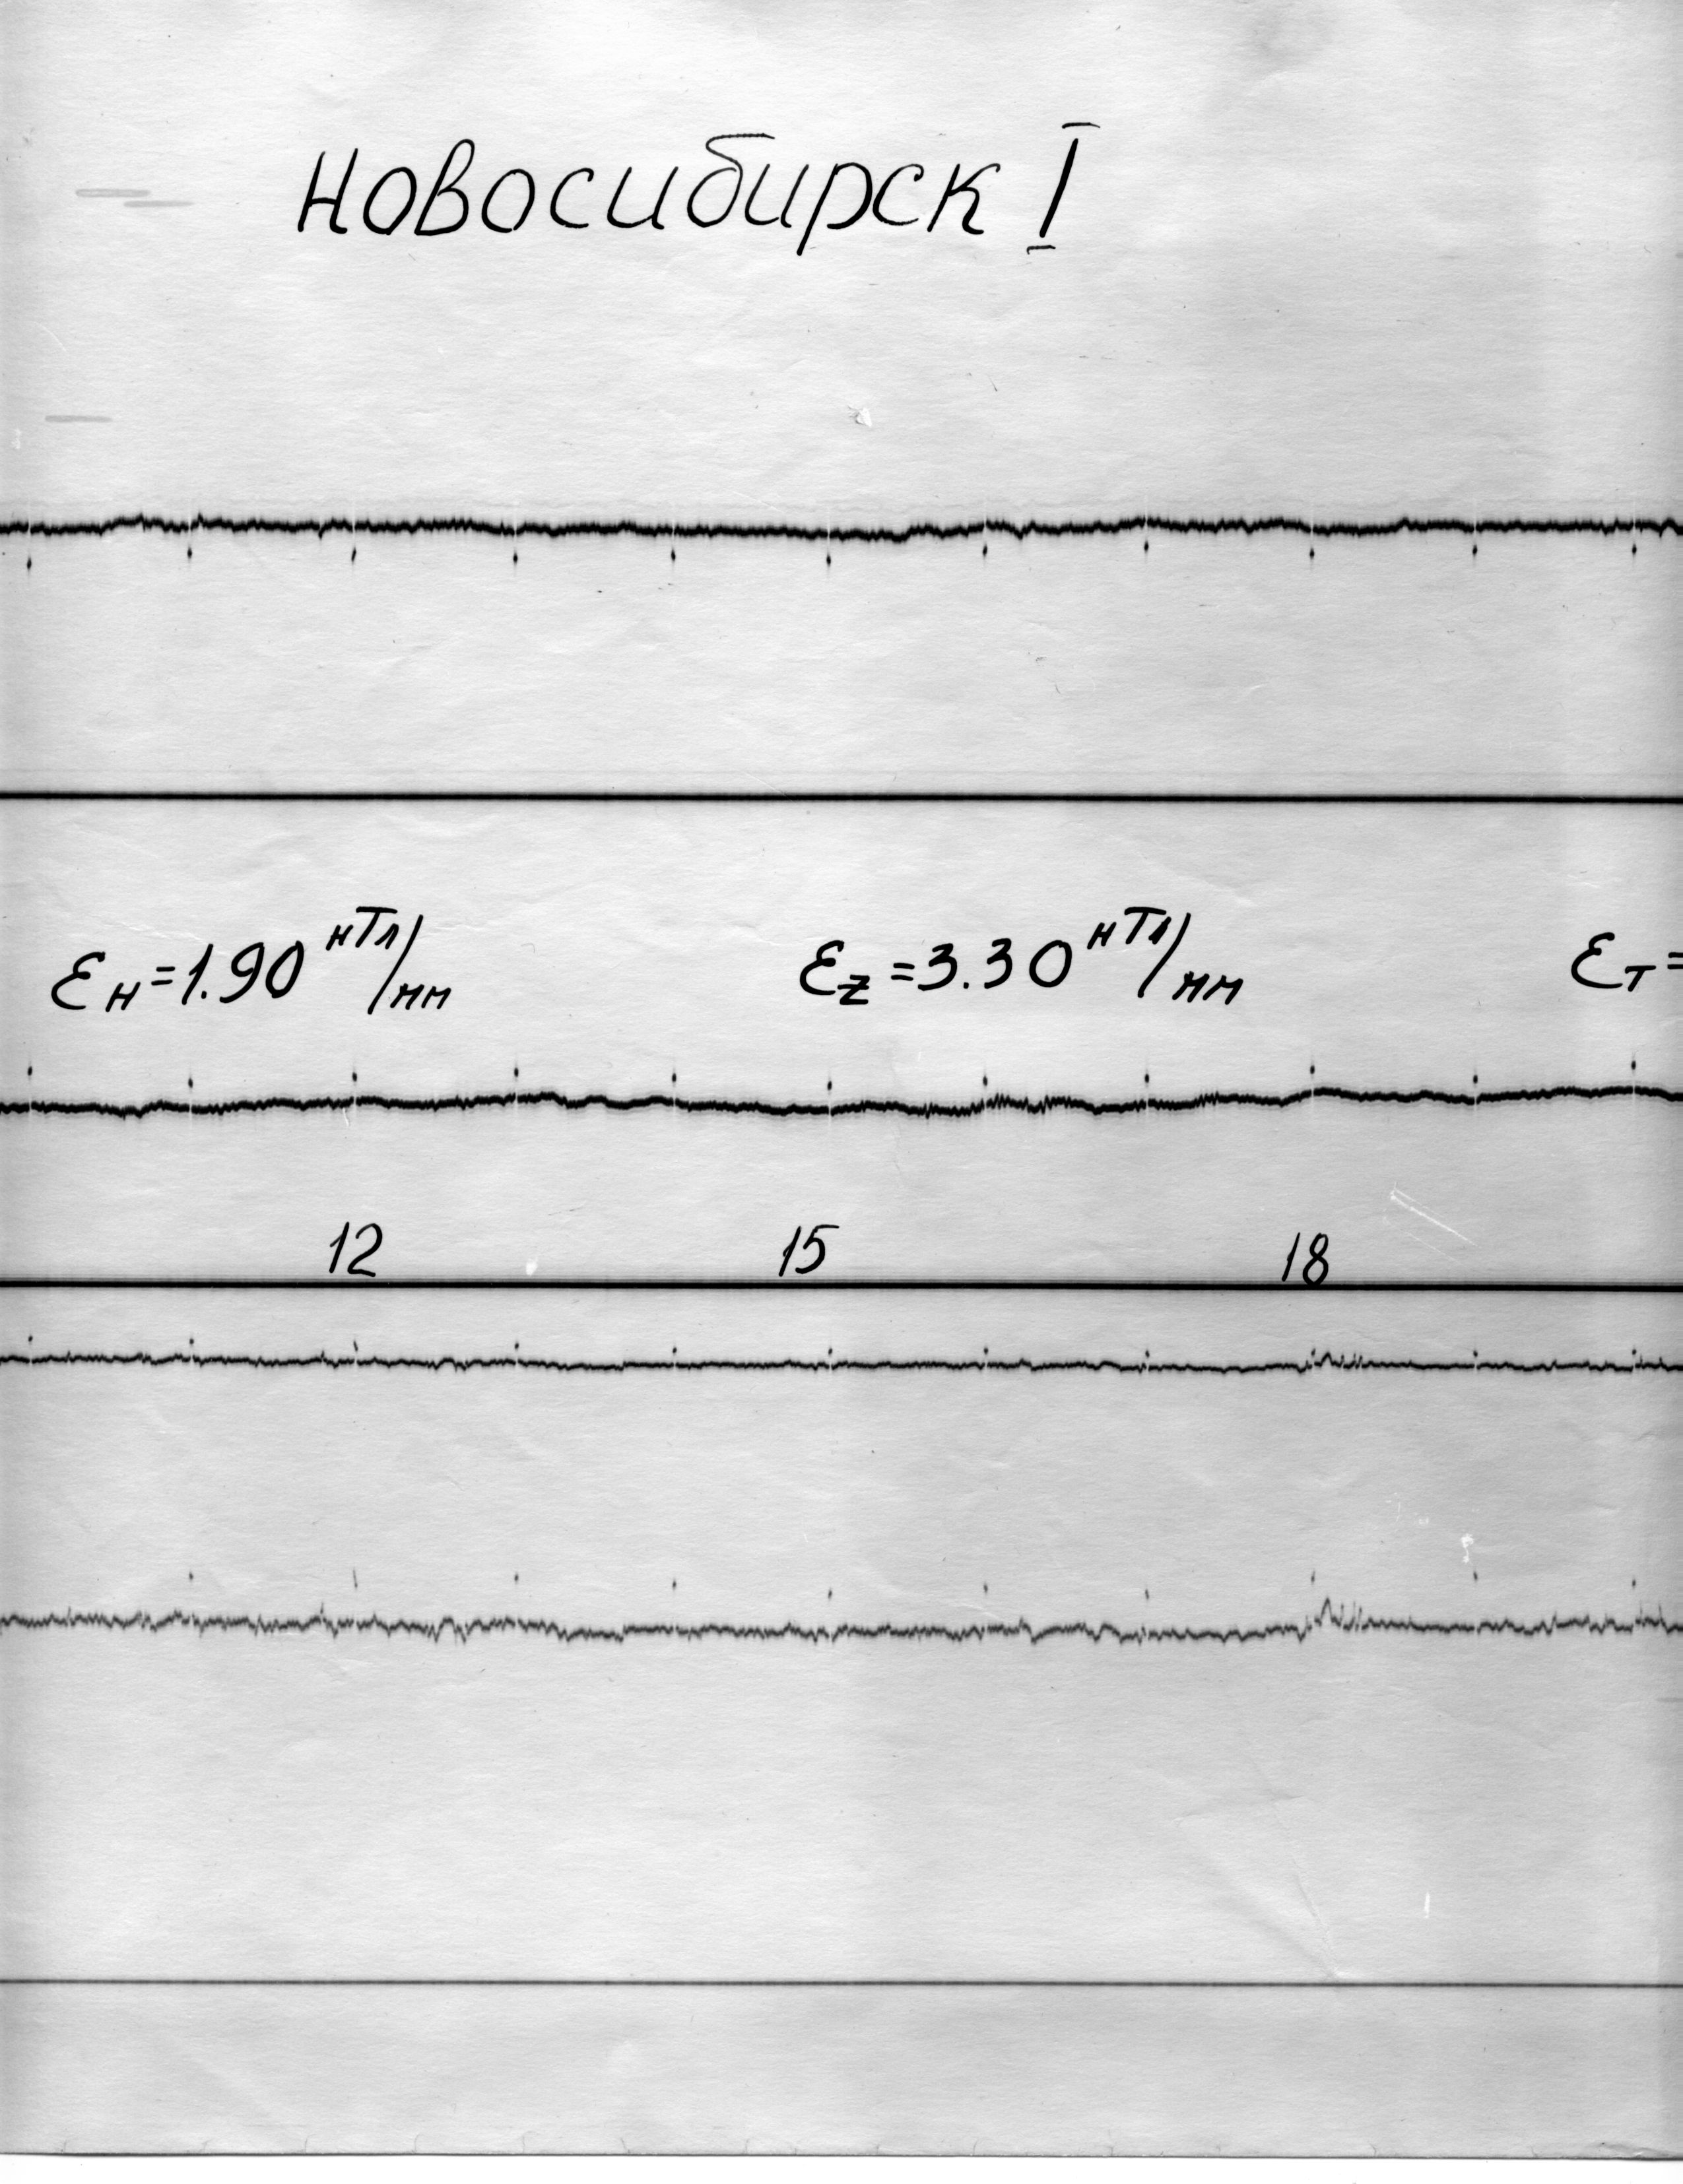 Новосибирск I
εH=1.90 нТл/мм εZ=3.30 нТл/мм εT=
12 15 18